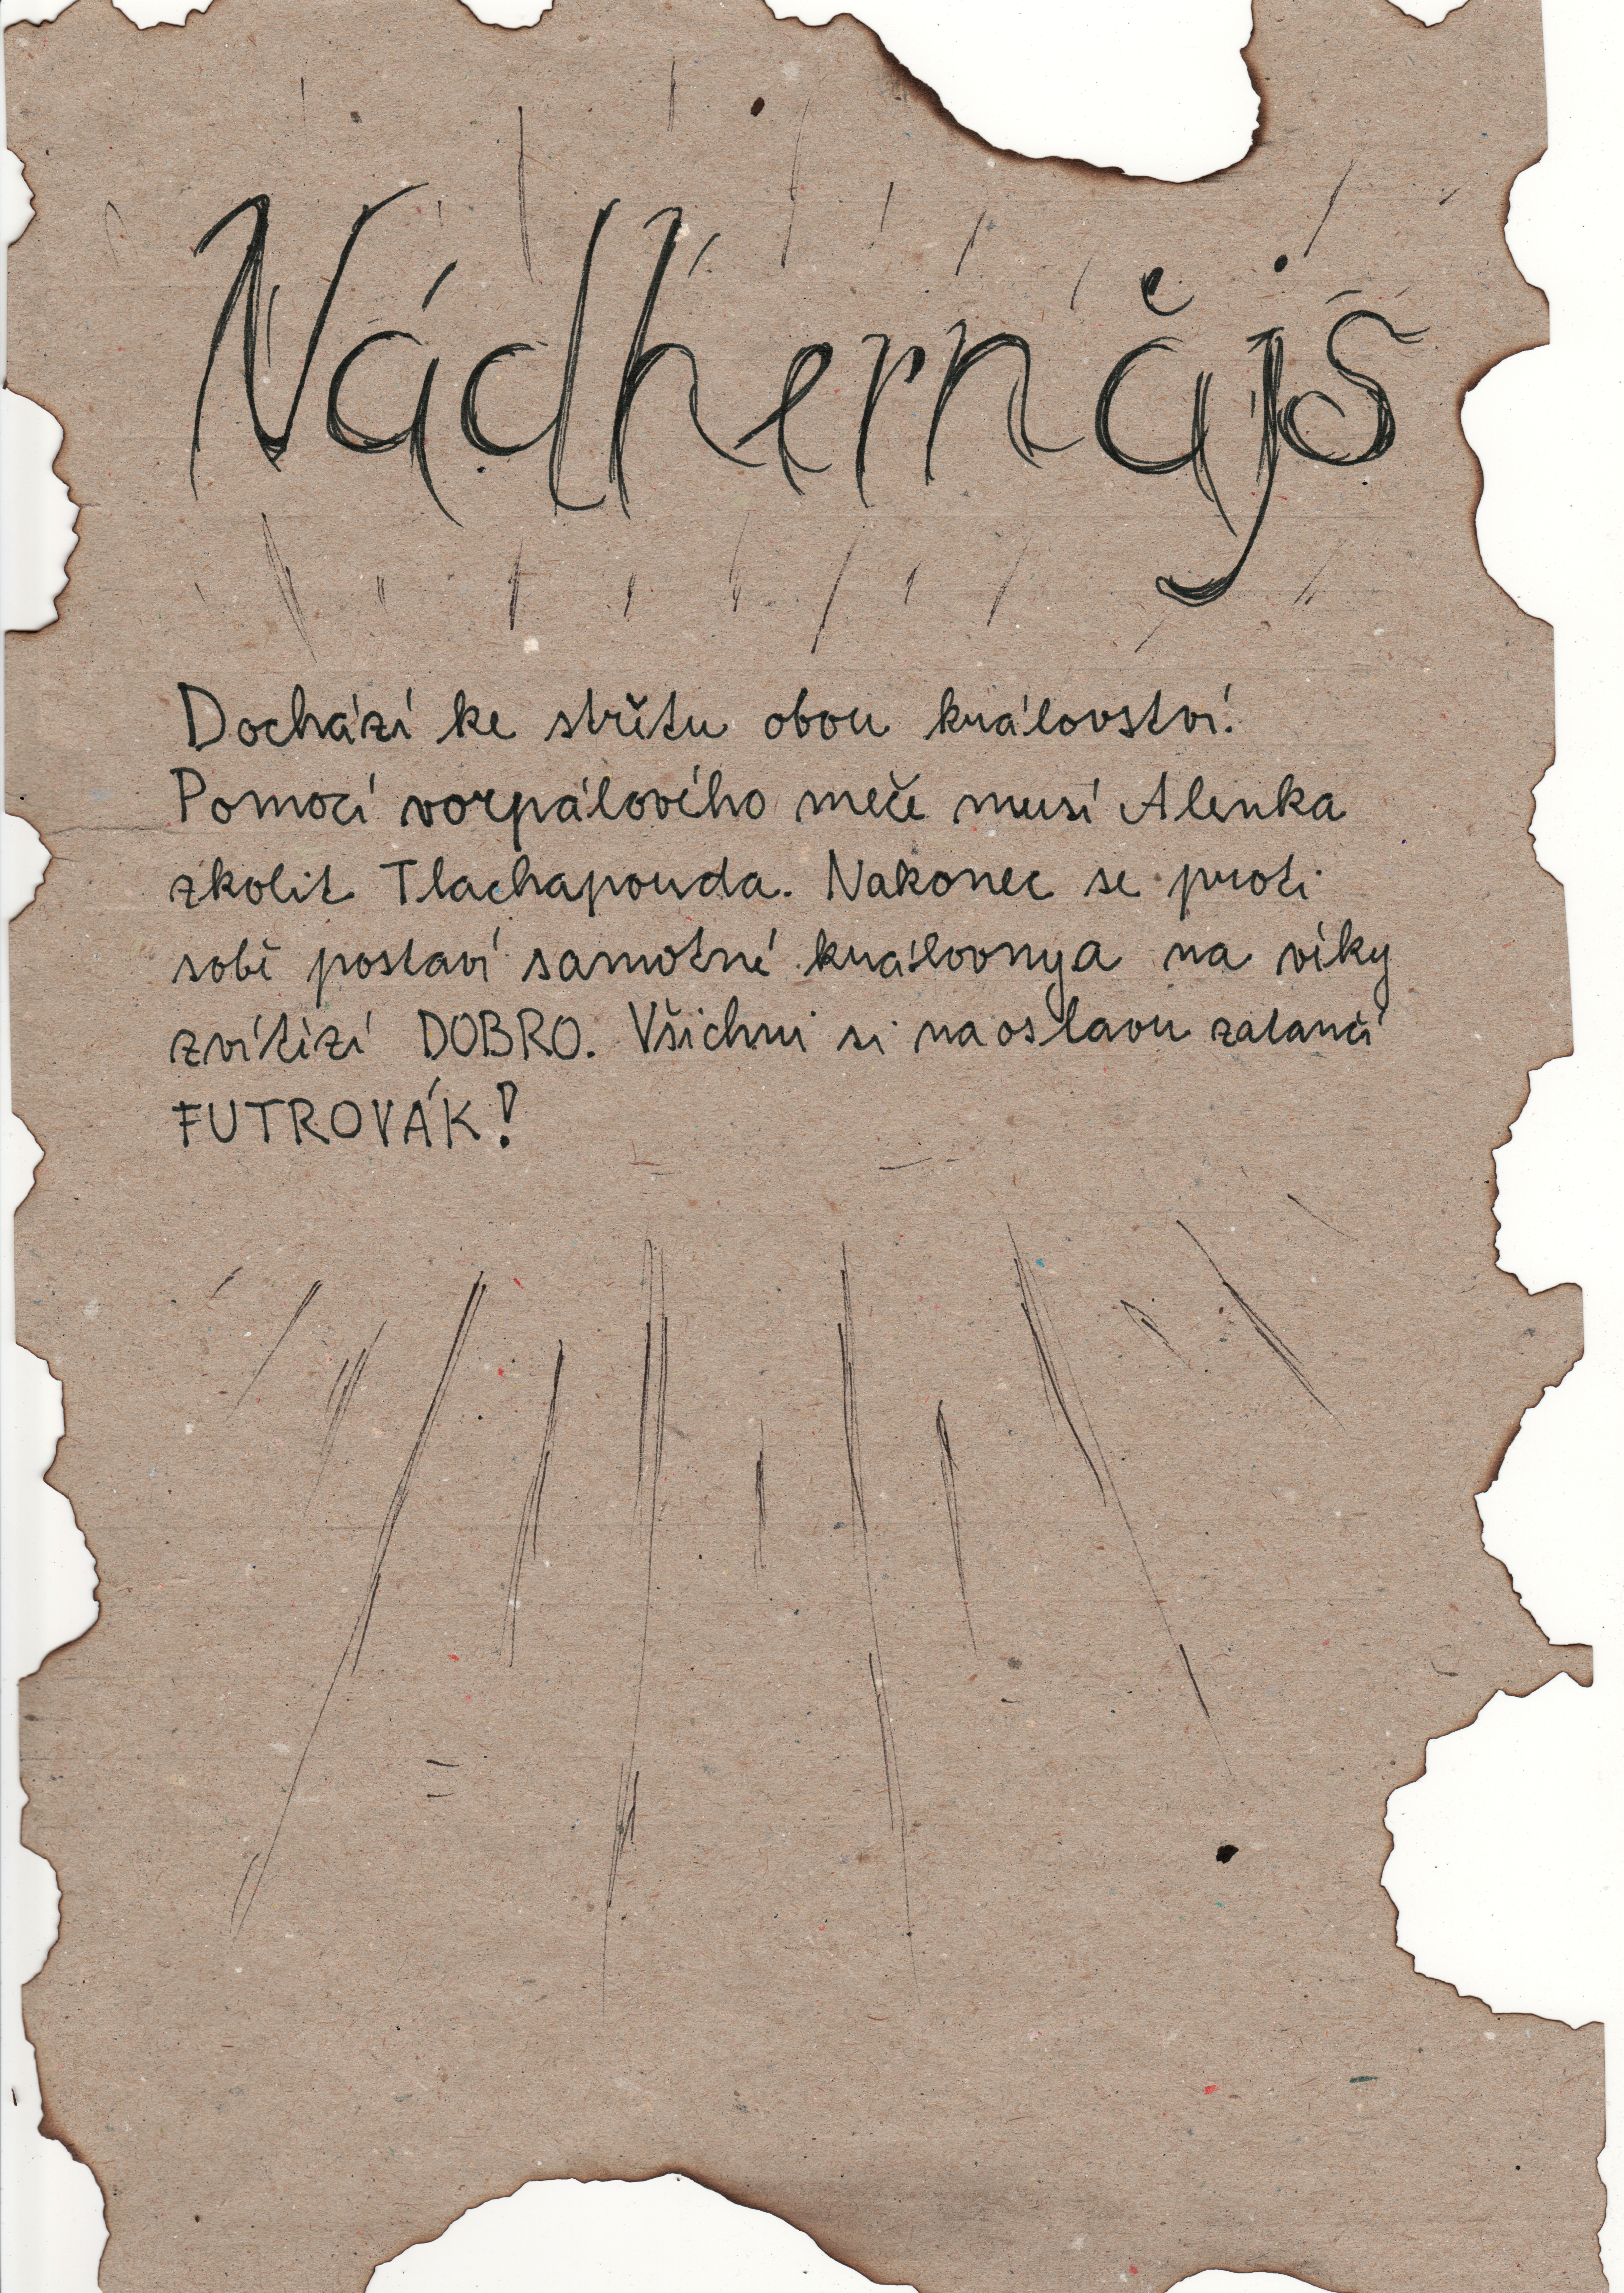 Nádherňájš
Dochází ke střetu obou království!
Pomocí vorpálového meče musí Alenka
zkolit Tlachapouda. Nakonec se proti
sobě postaví samotné královny a na věky
zvítězí DOBRO. Všichni si na oslavu zatančí
FUTROVÁK!